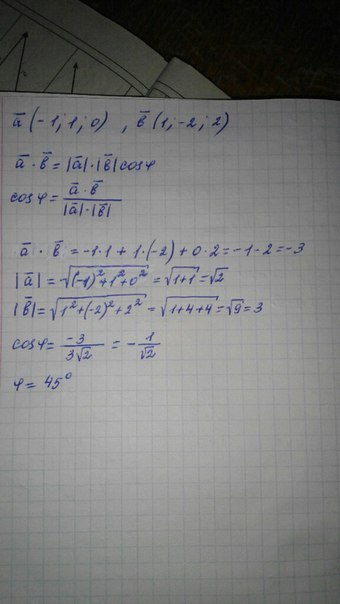 a̅ (-1; 1; 0) , b̅ (1; -2; 2)
a̅ · b̅ = |a̅| · |b̅| cosφ
cosφ = (a̅ · b̅) / (|a̅| · |b̅|)
a̅ · b̅ = -1·1 + 1·(-2) + 0·2 = -1-2 = -3
|a̅| = √((-1)² + 1² + 0²) = √(1+1) = √2
|b̅| = √(1² + (-2)² + 2²) = √(1+4+4) = √9 = 3
cosφ = -3 / 3√2 = - 1/√2
φ = 45°